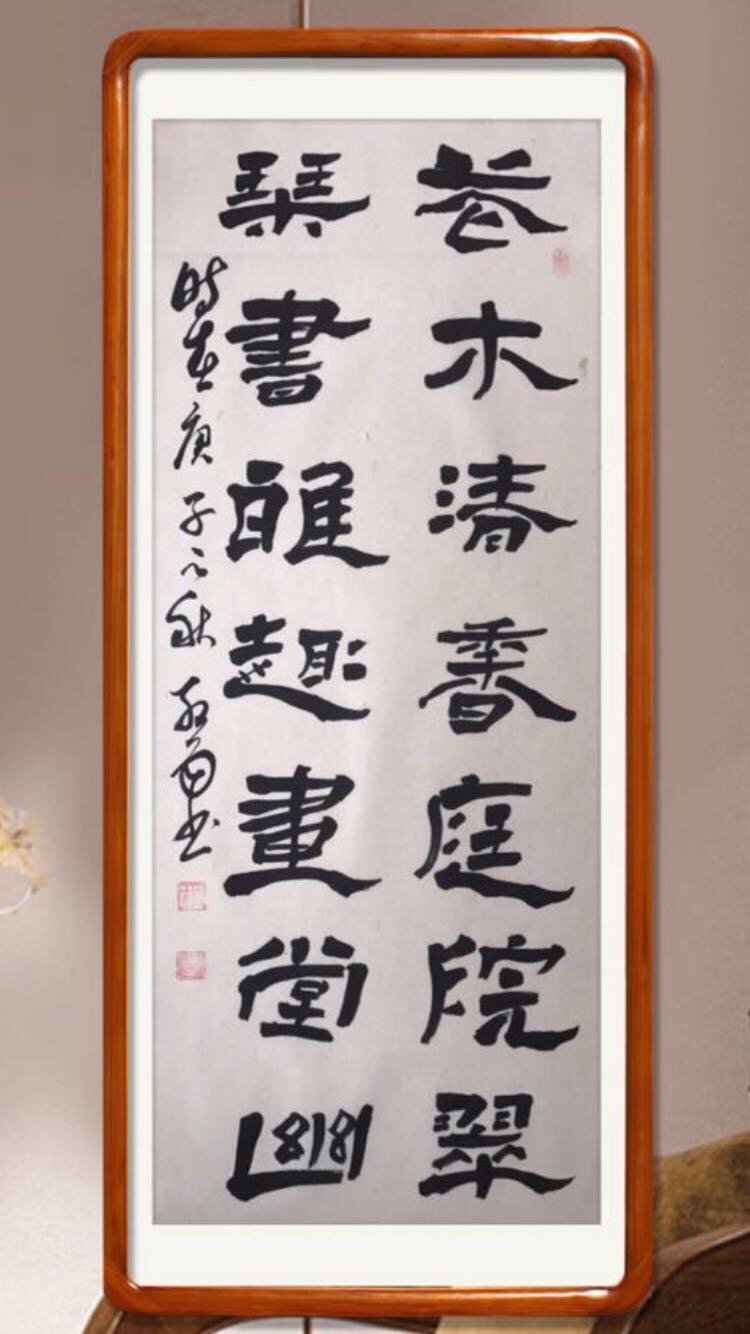 花木清香庭院翠
琴書雅趣畫堂幽
时在庚子之秋 书